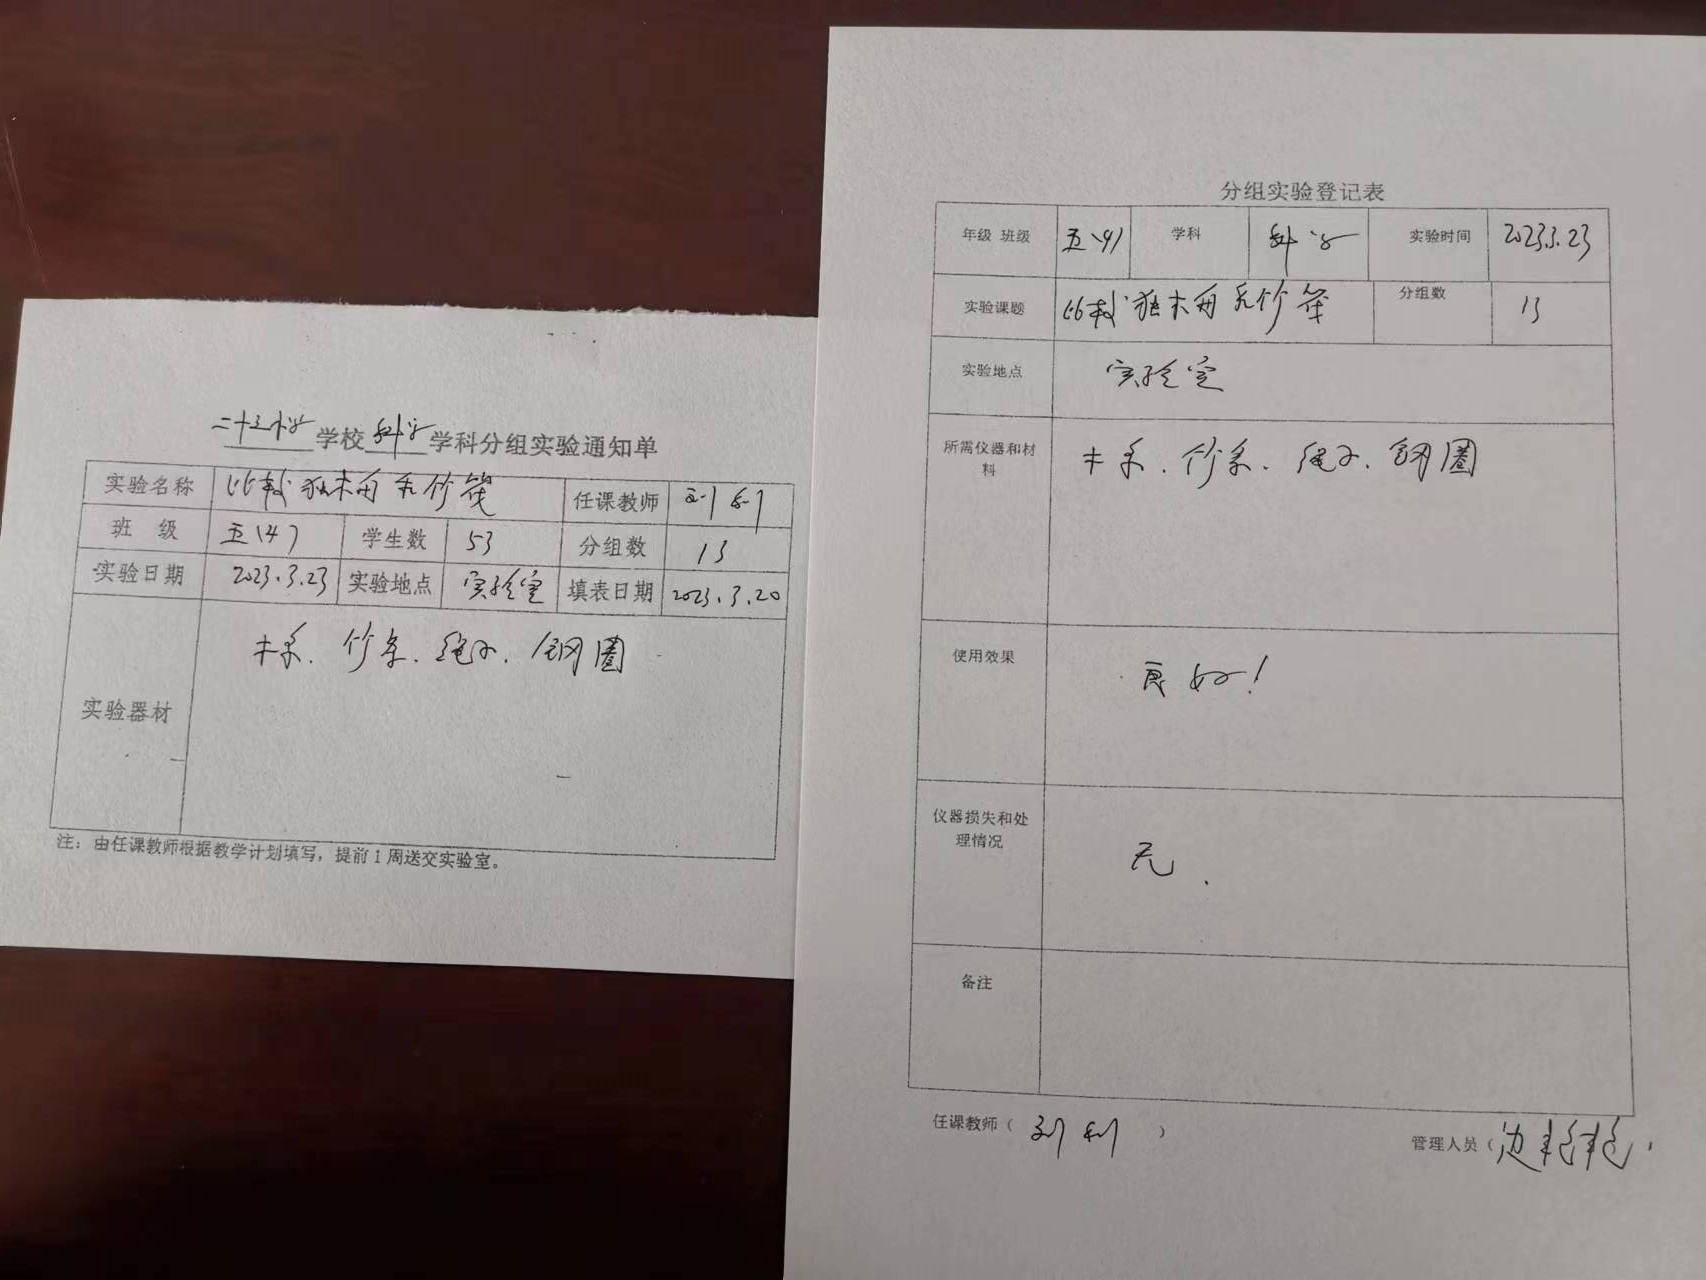 二十三小学学校科学学科分组实验通知单
实验名称 比较独木舟和竹筏 任课教师 刘利
班 级 五(4) 学生数 53 分组数 13
实验日期 2023.3.23 实验地点 实验室 填表日期 2023.3.20
实验器材 木条.竹条.绳子.钢圈
注：由任课教师根据教学计划填写，提前1周送交实验室。
分组实验登记表
年级 班级 五(4) 学科 科学 实验时间 2023.3.23
实验课题 比较独木舟和竹筏 分组数 13
实验地点 实验室
所需仪器和材
料
木条.竹条.绳子.钢圈
使用效果 良好！
仪器损失和处
理情况
无.
备注
任课教师（刘利） 管理人员（边